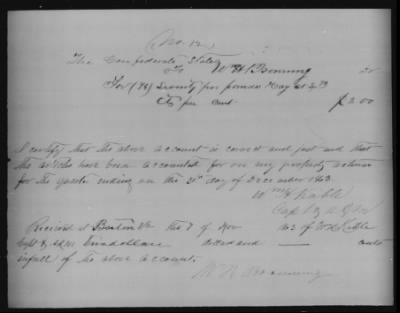 (No. 12)
The Confederate States
To W H Browning Dr
For (78) Seventy pounds Hay at
Cts per cent $2.00
I certify that the above account is correct and just and that
the articles have been accounted for on my property return
for the quarter ending on the 31st day of December 1863.
Wm H Kable
Capt & A Q M
Received at the 7 of Nov 1863 of W H Kable
Capt & AQM dollars and — cents
in full of the above account.
W H Browning